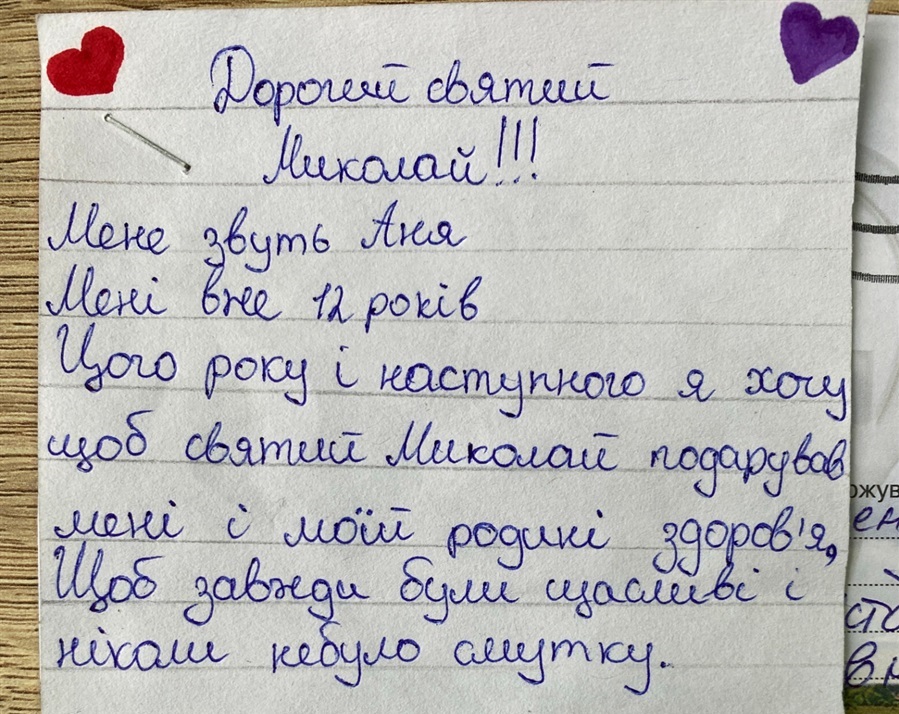 Дорогий святий
Миколай!!!
Мене звуть Аня
Мені вже 12 років
Цього року і наступного я хочу
щоб святий Миколай подарував
мені і моїй родині здоров'я,
Щоб завжди були щасливі і
ніколи небуло смутку.